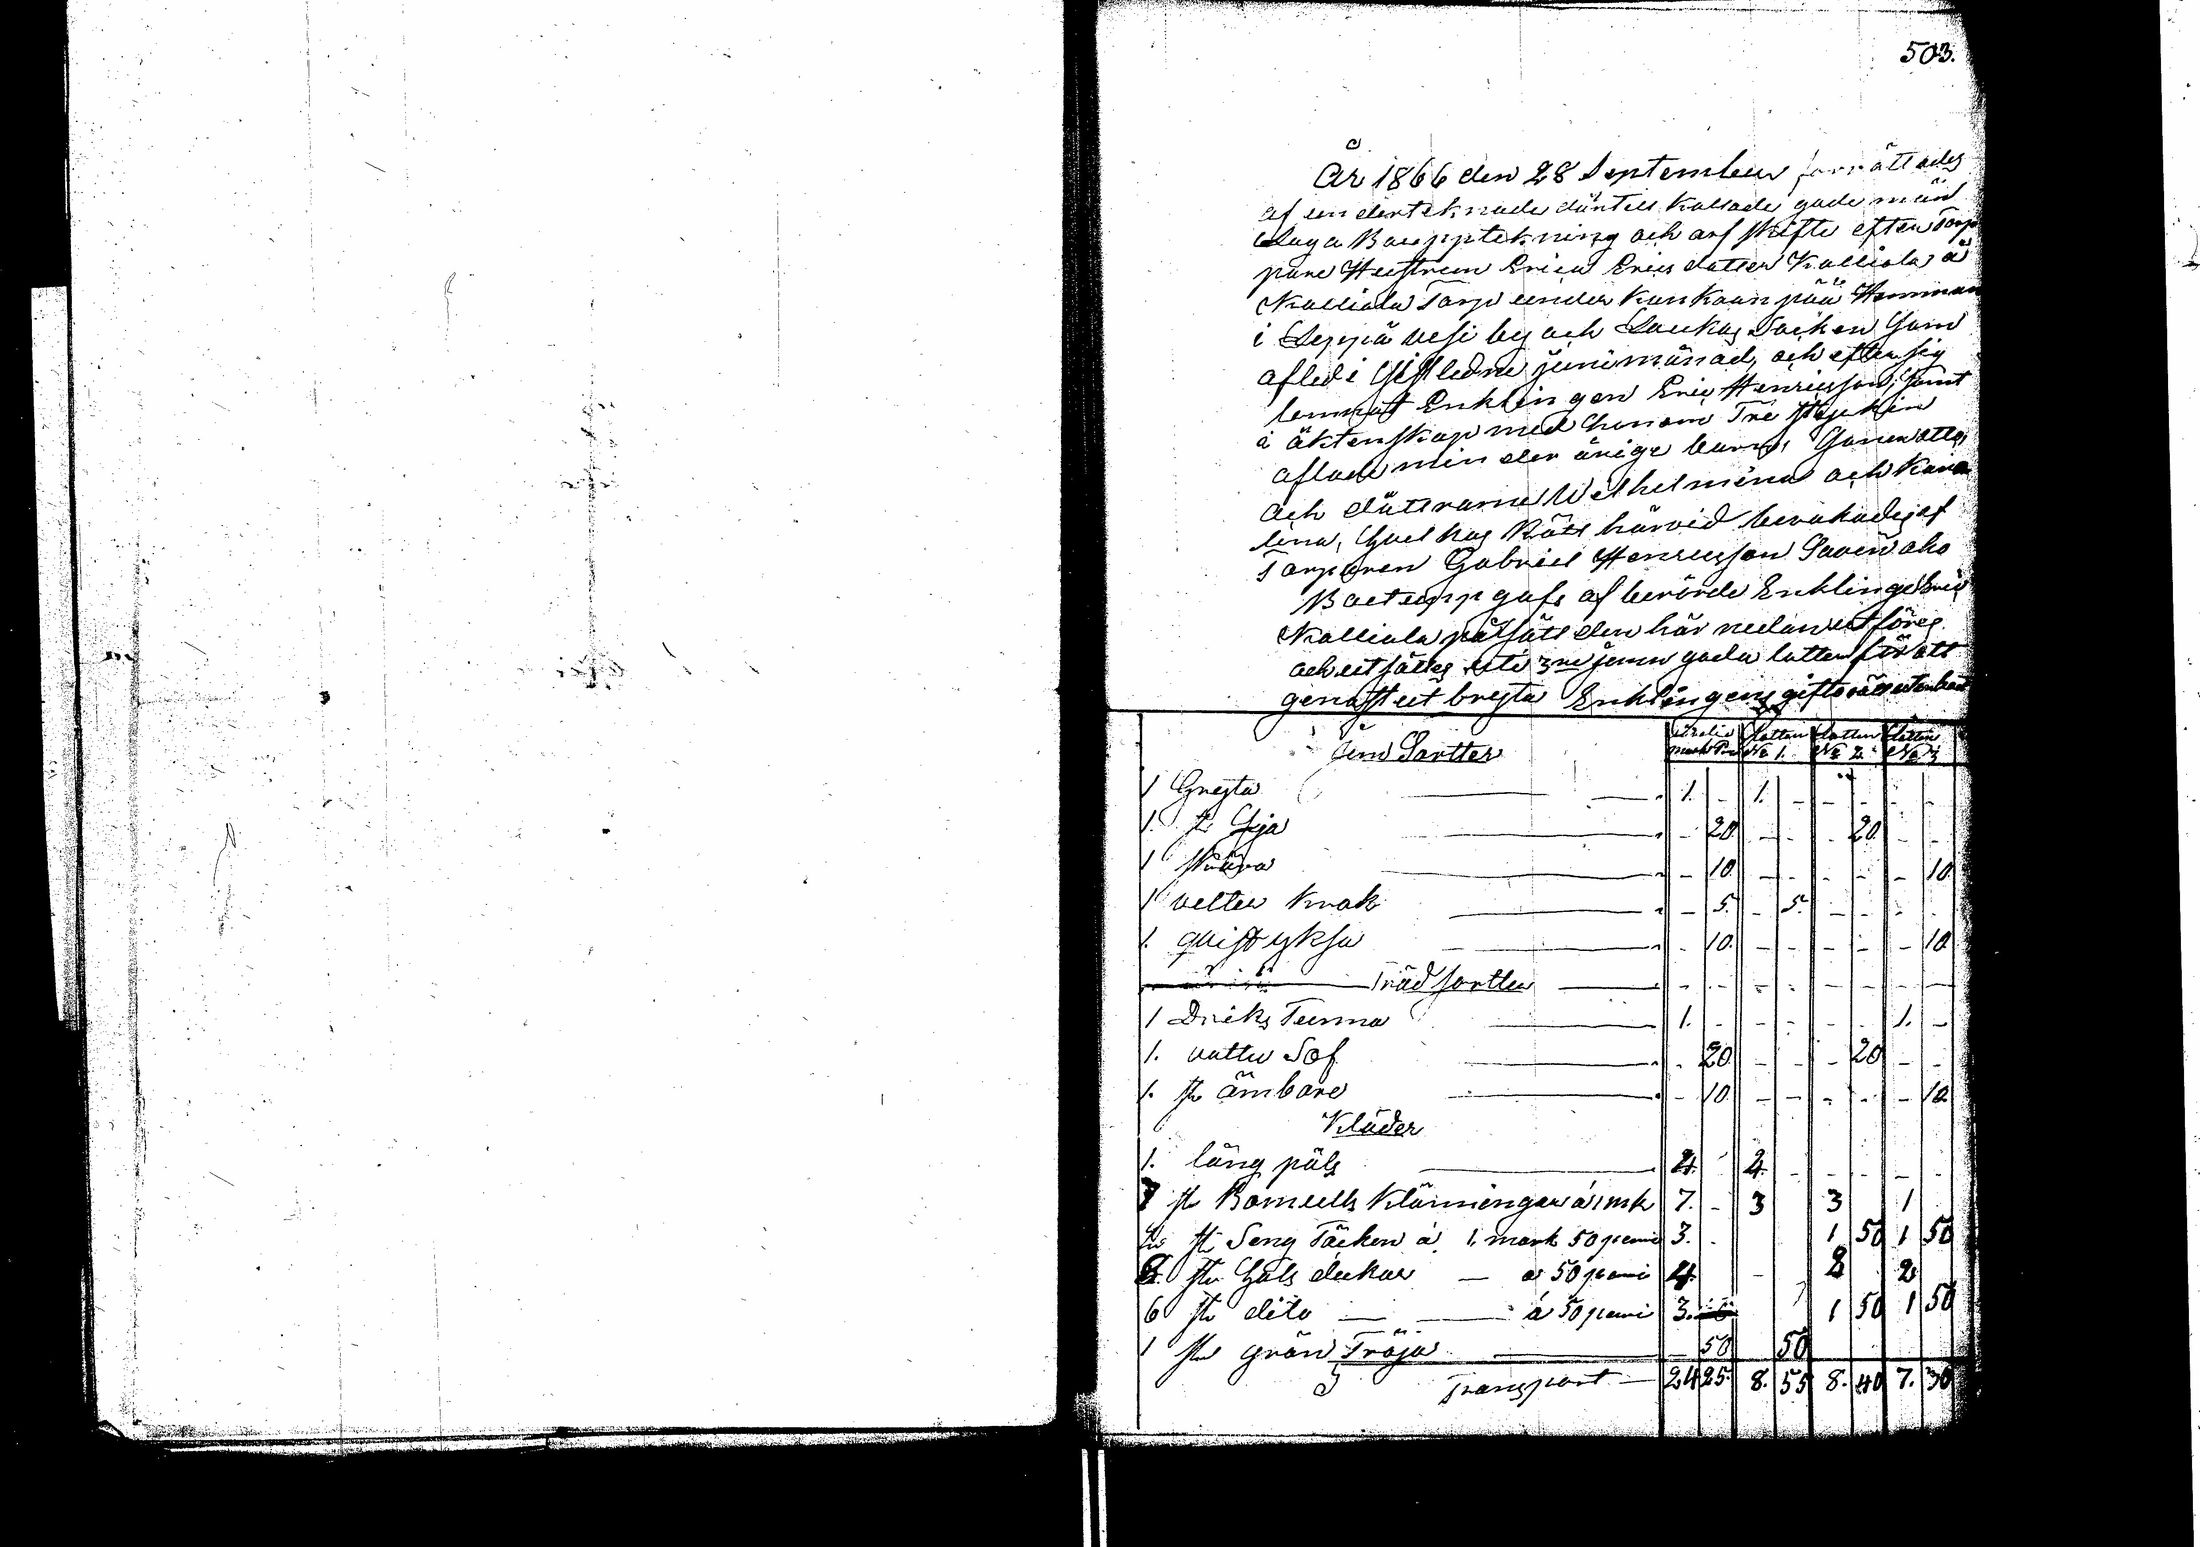 503.
År 1866 den 28 September förrättades
af underteknade därtill kallade gode män
Laga Bouppteckning och arf skifte efter Torp
pare Hustrun Erica Ericsdotter Kalliola å
Kalliola Torp under Kunkaanpää Hemman
i Leppävesi by och Laukas Socken Som
afled i Sistledne juni månad, och efter sig
lemnat Enklingen Eric Henricsson, Samt
i äktenskap med honom Tre stycken
aflade minderårige barn, Sonen Otto,
och dötrarne Wilhelmina och Karo
lina, Hvilkas Rätt härvid bevakades af
Torparen Gabriel Henricsson Savenaho
Boet uppgafs af berörde Enklinge Eric
Kalliola på sätt den här nedan utföres
och utsättes uti 3ne jemn goda lotter för att
genast utbryta Enklingens giftorätt utur boet
Jern Sortter
mark Pe No 1. Lotten No 2. Lotten No 3
1 Gryta 1. - 1. - - - - -
1. Lija - 20 - - - 20 - -
1 Skära - 10. - - - - - 10
1 velter krok - 5. - 5. - - - -
1. quist yksa - 10. - - - - - 10
Träd sortter
1 Dricks Tunna 1. - - - - - 1. -
1. vatten Sof - 20 - - - 20 - -
1. st ämbare - 10 - - - - - 10
Kläder
1. lång päls 4. 4. - - - - -
7 st Bomulls Klänningar á 1 mk 7. - 3 3 1
2 st Seng Täcken á 1. mark 50 penni 3. - 1 50 1 50
8 st hals dukar — á 50 penni 4. - 2 2
6 st dito — á 50 penni 3. 1 50 1 50
1 st grön Tröja 50 50
Transport — 24 25. 8. 55 8. 40 7. 30